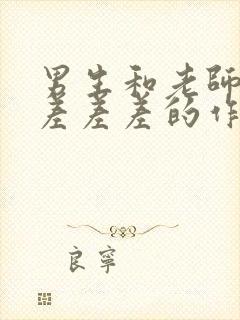 男生和老師
差差差的作
良寧